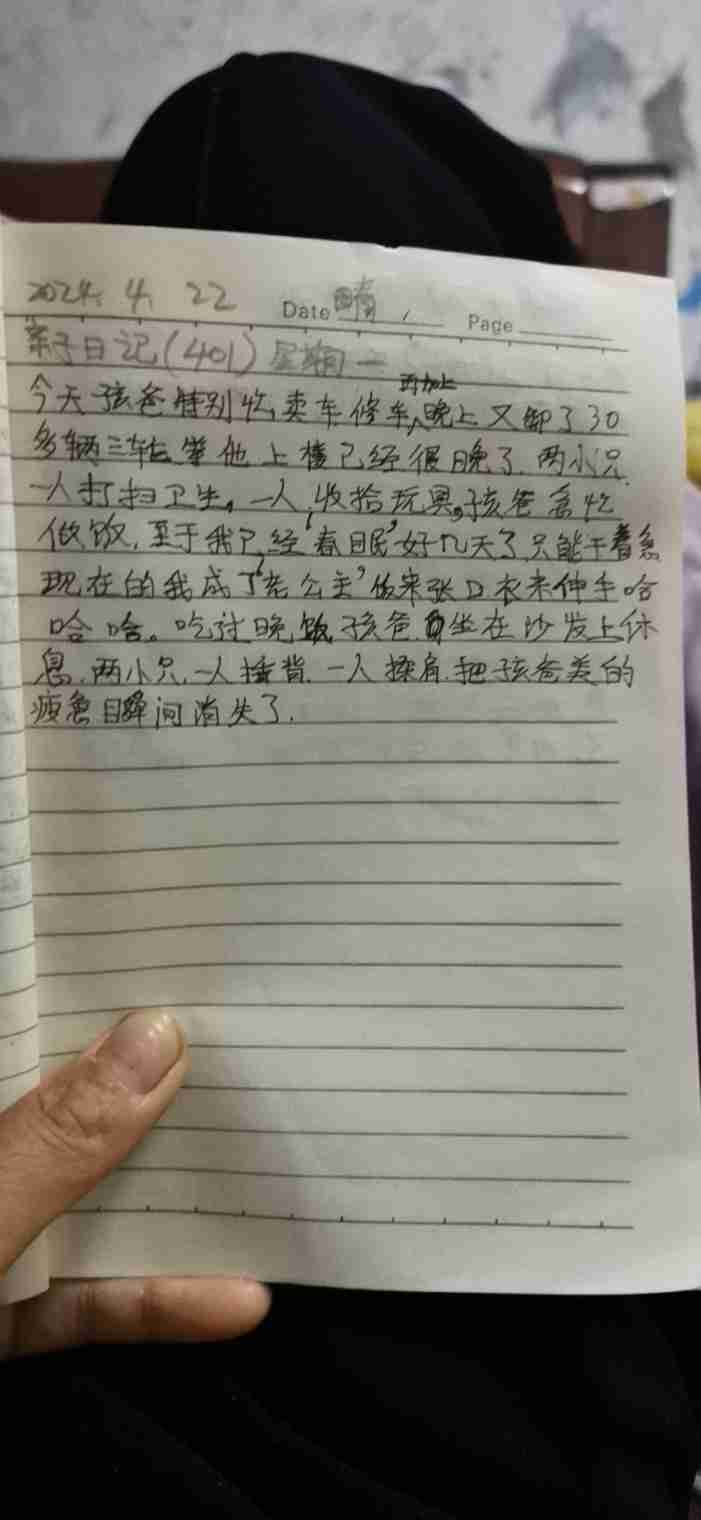 2024. 4. 22 Date 晴 Page
亲子日记(401) 星期一
今天孩爸特别忙,卖车修车,再加上晚上又卸了30
多辆三轮车等他上楼已经很晚了.两小只.
一人打扫卫生,一人收拾玩具,孩爸急忙
做饭,至于我已经“春眠”好几天了只能干着急
现在的我成了“老公主”饭来张口衣来伸手哈
哈哈。吃过晚饭孩爸坐在沙发上休
息.两小只.一人捶背.一人揉肩.把孩爸美的
疲惫瞬间消失了.